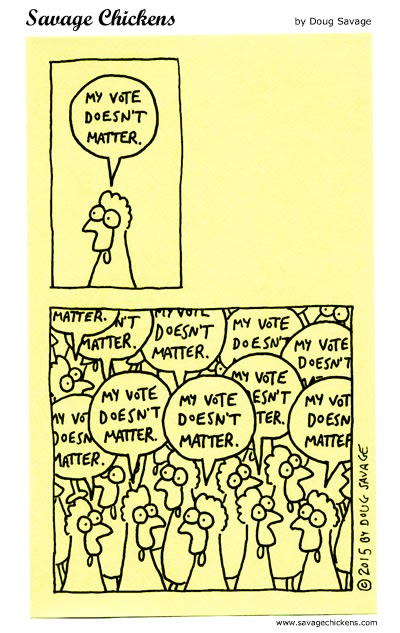 Savage Chickens
by Doug Savage
MY VOTE
DOESN'T
MATTER.
MATTER.
N'T
MATTER.
MY VOTE
DOESN'T
MATTER.
MY VOTE
DOESN'
MY VOTE
DOESN'T
MY VO
DOESN
MATTER.
MY VOTE
DOESN'T
MATTER.
MY VOTE
DOESN'T
MATTER.
MY VOTE
ESN'T
TER.
MY VOT
DOESN
MATTER
© 2015 BY DOUG SAVAGE
www.savagechickens.com